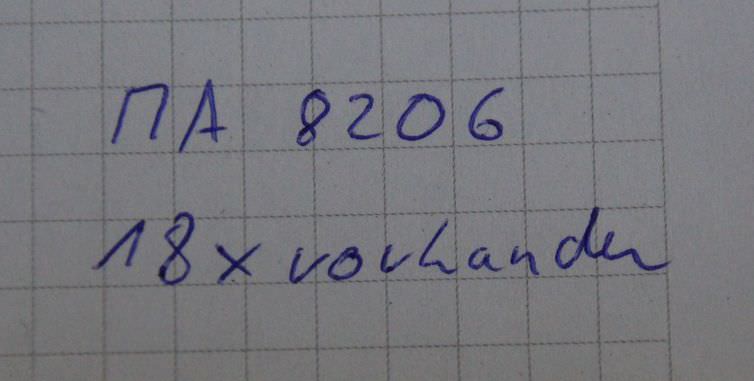 ПА 8206
18x vorhanden